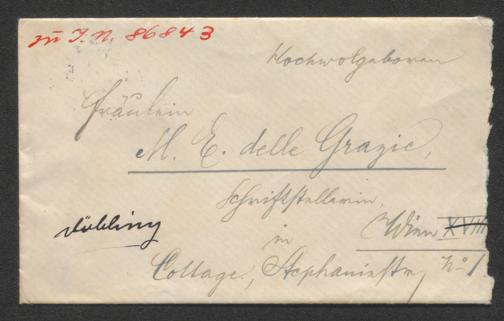 zu I. N. 86843
Hochwolgeboren
Fräulein
M. E. delle Grazie,
Schriftstellerin,
Döbling
in
Wien XVIII
Cottage, Stephaniestr. No 1